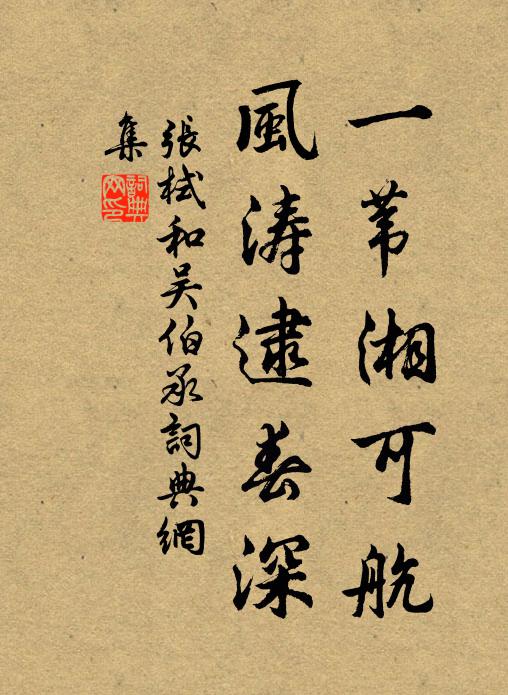 一葦湘可航
風濤逮春深
張栻和吴伯承詞典網
集
詞典